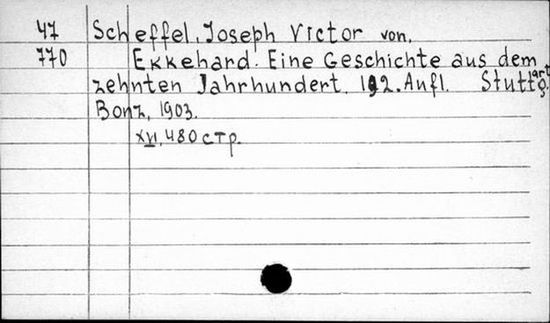 47 Scheffel, Joseph Victor von.
770 Ekkehard. Eine Geschichte aus dem
zehnten Jahrhundert. 192. Aufl. Stuttgart
Bonz, 1903.
XVI, 480 стр.